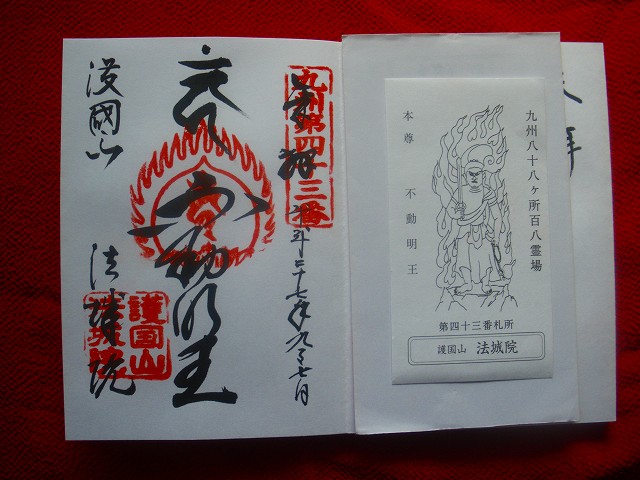 奉拝
九州第四十三番
平成二十七年九月七日
不動明王
護國山
法城院
護国山
九州八十八ヶ所百八霊場
本尊 不動明王
第四十三番札所
護国山 法城院
拝